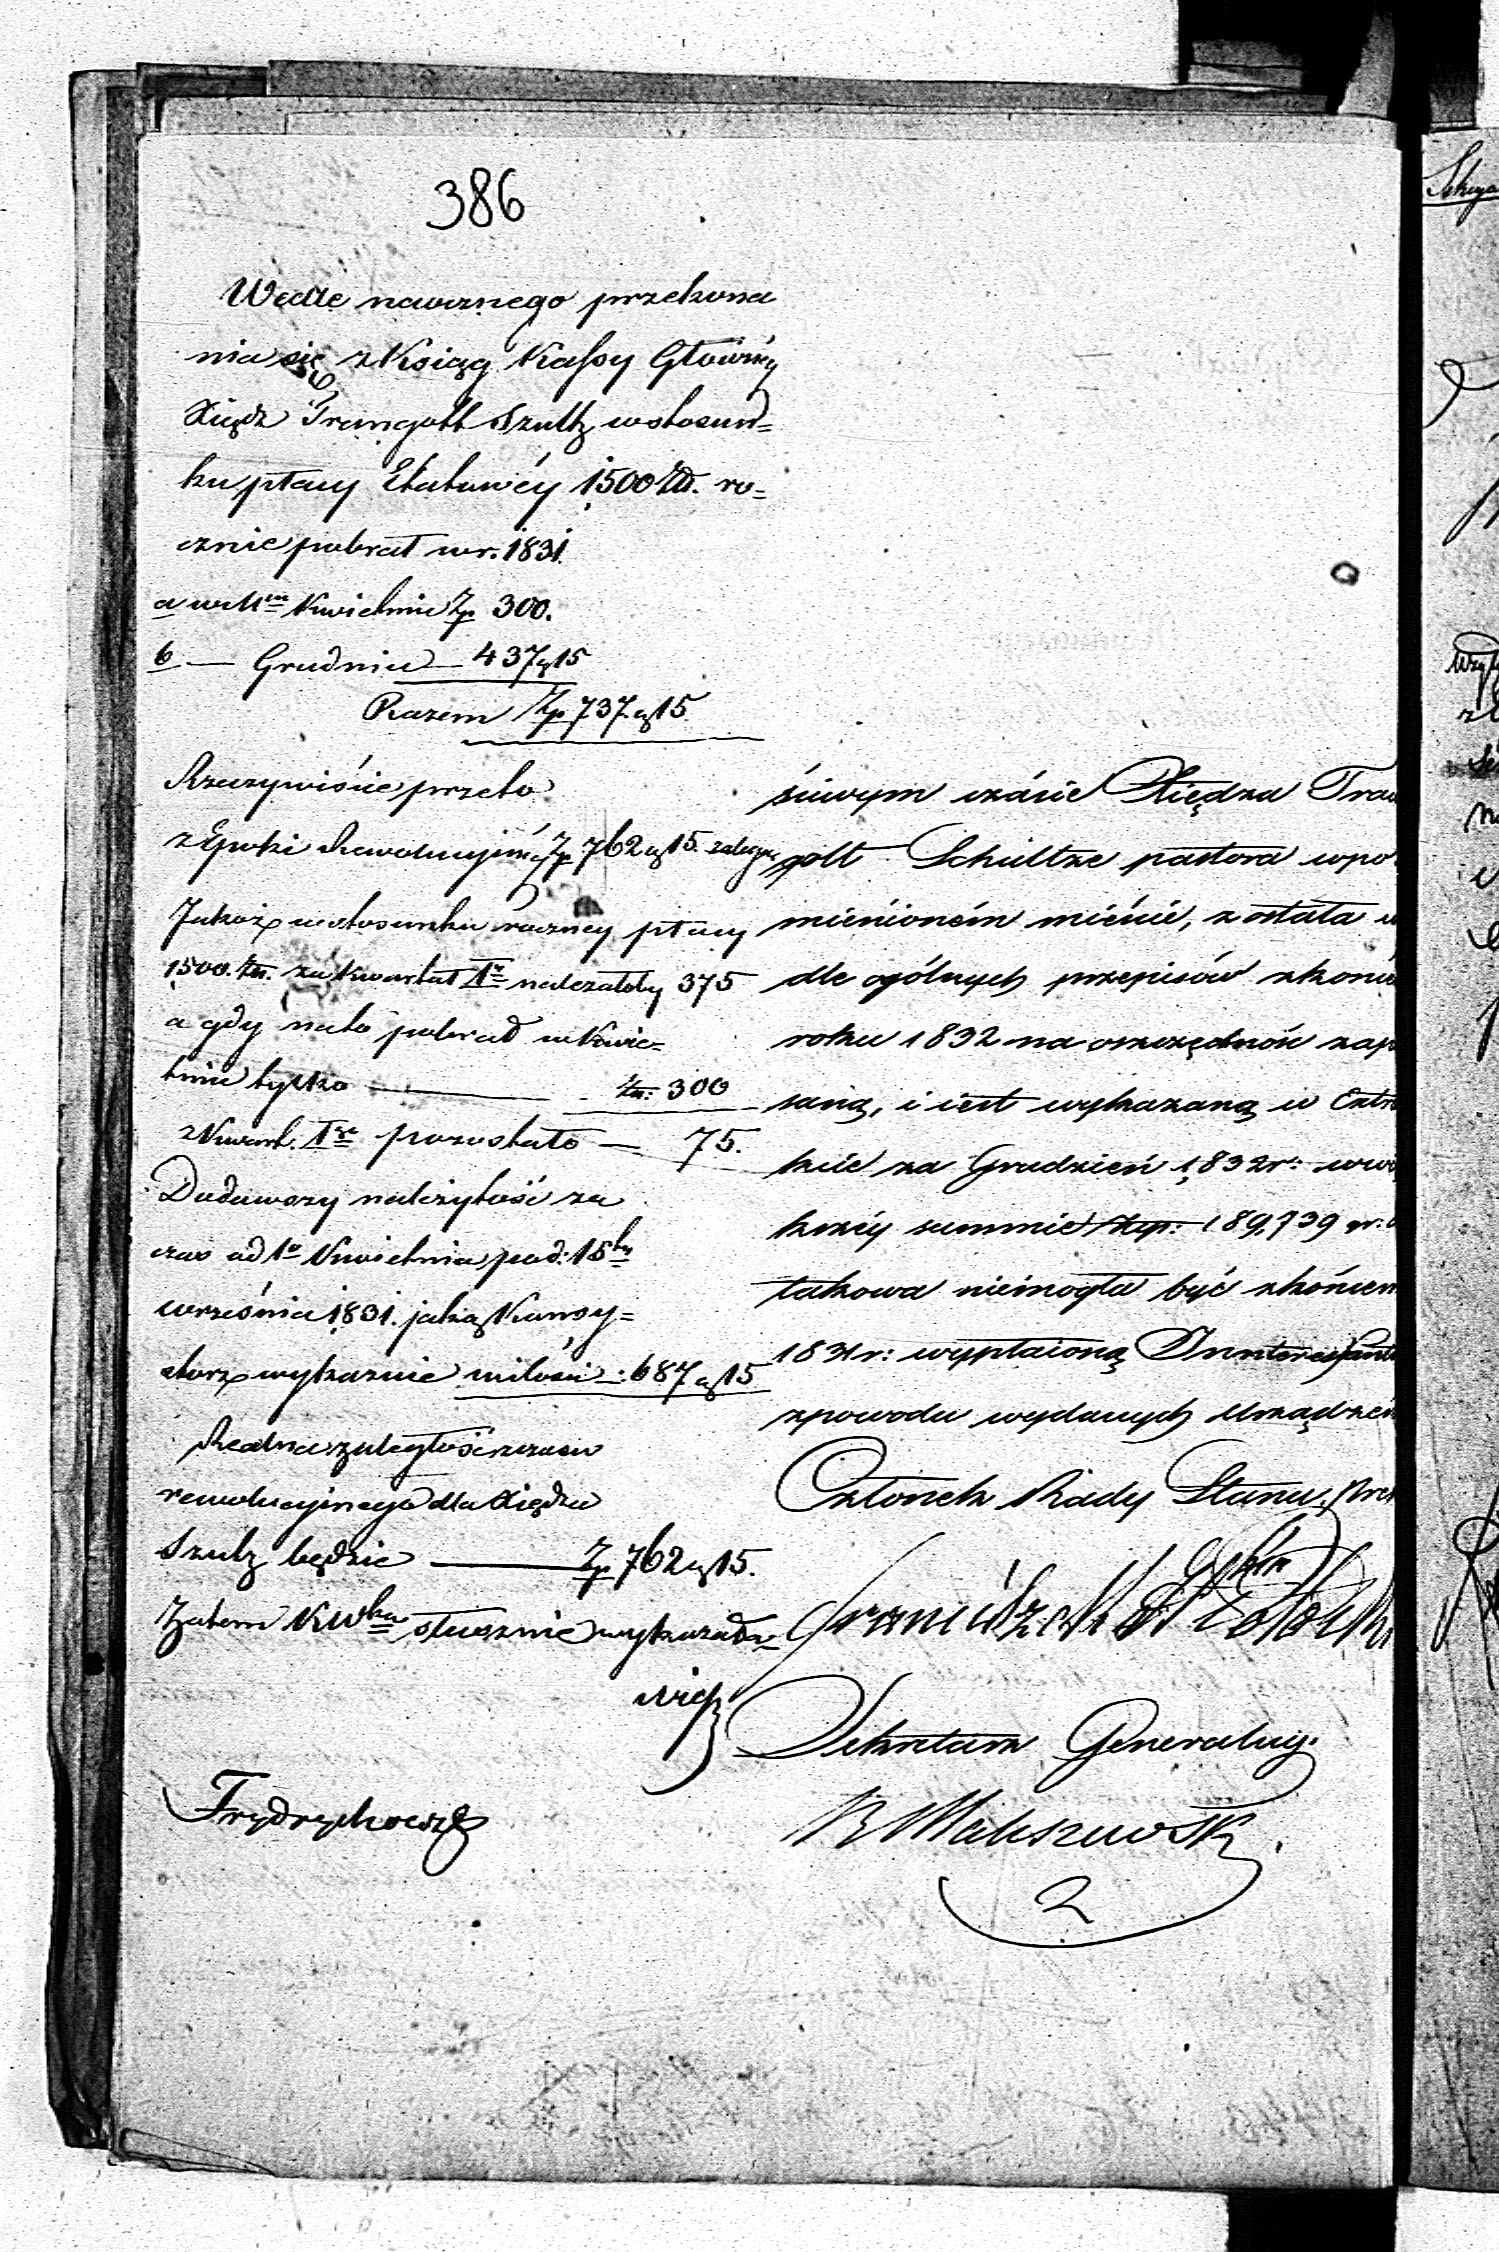 386
Wedle naocznego przekona
nia się z Ksiąg Kassy Główney
Xiądz Traugott Szultz wstosun=
ku płacy Etatowéy 1500 Złł. ro=
cznie pobrał w r. 1831.
a w Mcu Kwietniu Zp 300.
b — Grudniu — 437 g 15
Razem Zp 737 g 15.
Rzeczywiście przeto
z Epoki Rewolucyjnéy Zp 762 g 15. zalega
Jakoż wstosunku roczney płacy
1500. złł. za Kwartał Iy należałoby 375
a gdy nato pobrał w Kwie=
tniu tylko — złł: 300
z Kwart. Igo pozostało — 75.
Dodawszy należytość za
czas od 1o Kwietnia pod: 15ty
września 1831. jaką Konsy=
storz wykazuie w ilości : 687 g 15
Realna zaległość z czasu
rewolucyinego dla Xiędza
Szulz będzie — Zp 762 g 15.
Zatem KWka słusznie wykazała
więc
Frydrychowicz
śiwym czásie Xiędza Trau
gott Schultze pastora wpo
mienioném mieście, została w
dle ogólnych przepisów z końc
roku 1832 na oszczędność zap
saną, i iest wykazaną w Extra
kcie za Grudzień 1832 r: w wi
kszéy summie złp: 189,739 gr:
takowa niemogła być z końcem
1831 r: wypłaconą Interessant
z powodu wydanych Urządzeń
Członek Rady Stanu, Prez
Franciszek Potocki
Sekretarz Generalny.
B Maliszewski
2